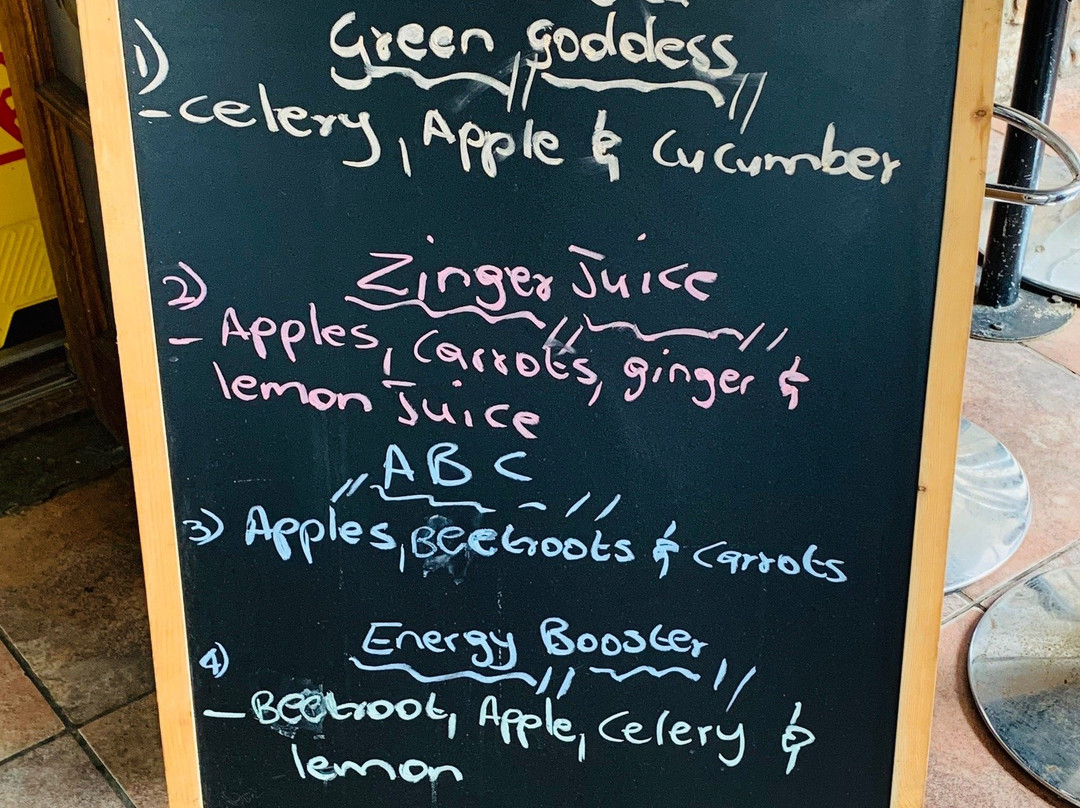 1) Green goddess
- celery, Apple & Cucumber
2) Zinger Juice
- Apples, Carrots, ginger &
lemon Juice
ABC
3) Apples, Beetroots & Carrots
4) Energy Booster
- Beetroot, Apple, Celery &
lemon